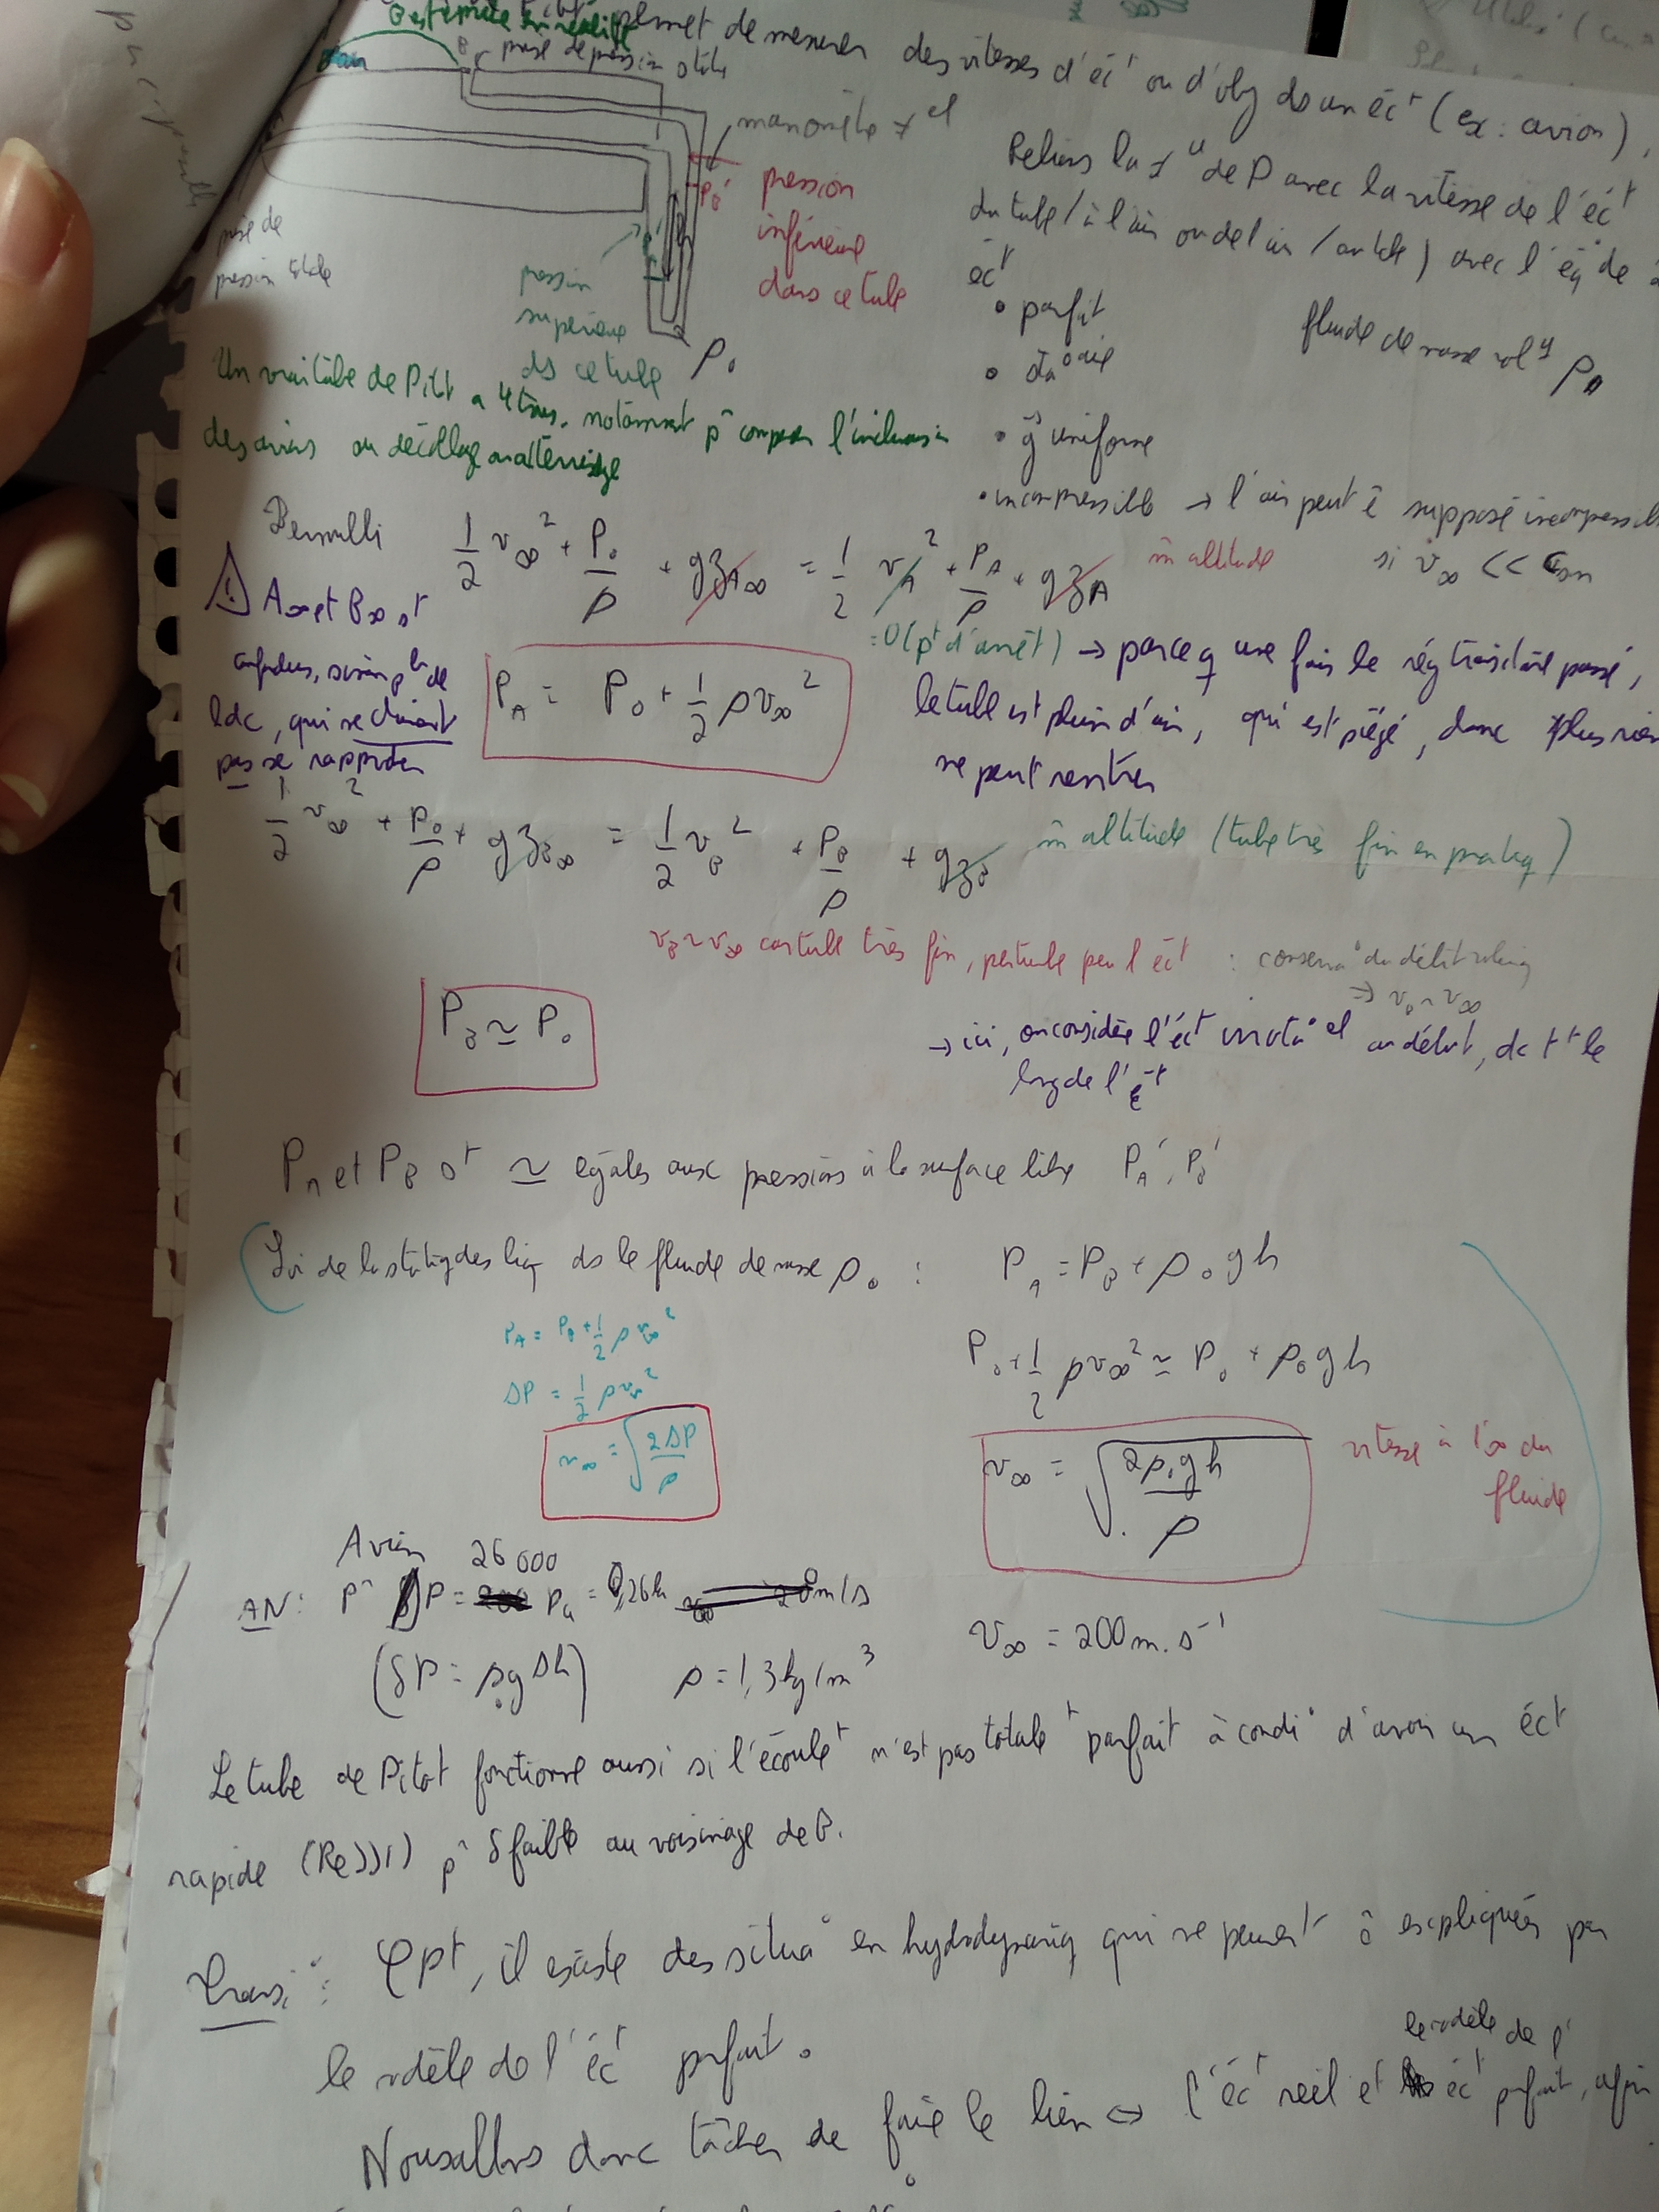 permet de mesurer des vitesses d'éc^t ou d'obj ds un éc^t (ex : avion),
B prise de pression stat
manomètre ≠el
Relions la ≠ de P avec la vitesse de l'éc^t
du tube / à l'air ou de l'air / au tube) avec l'éq° de
P_B' pression
inférieure
dans ce tube
prise de
pression totale
pression
supérieure
ds ce tube
ρ_0
éc^t
• parfait
• sta°aire
• g→ uniforme
• incompressible → l'air peut ê supposé incompressible
si v_∞ << c_son
fluide de masse vol ρ_0
Un vrai tube de Pitot a 4 trous, notamment p^r compenser l'inclinaison
des avions au décollage ou atterrissage
Bernoulli 1/2 v_∞² + P_0/ρ + gz_A∞ = 1/2 v_A² + P_A/ρ + gz_A m̂ altitude
=0 (p^t d'arrêt) → parce q une fois le rég transitoire passé,
le tube est plein d'air, qui est piégé, donc plus rien
ne peut rentrer
⚠ A∞ et B∞ s^t
confondus, sinon pb de
ldc, qui se doivent
pas se rapprocher
P_A = P_0 + 1/2 ρv_∞²
1/2 v_∞² + P_0/ρ + gz_B∞ = 1/2 v_B² + P_B/ρ + gz_B m̂ altitude (tube très fin en pratiq)
v_B ~ v_∞ car tube très fin, perturbe peu l'éc^t : conserva° du débit volumiq
⇒ v_B ~ v_∞
P_B ≃ P_0
→ ici, on considère l'éc^t irrota°el au début, dc t^t le
long de l'éc^t
P_A et P_B s^t ≃ égales aux pressions à la surface libre P_A', P_B'
Loi de la statiq des liq ds le fluide de masse ρ_0 : P_A = P_B + ρ_0gh
P_A = P_B + 1/2 ρv_∞²
ΔP = 1/2 ρv_∞²
v_∞ = √(2ΔP/ρ)
P_0 + 1/2 ρv_∞² ≃ P_0 + ρ_0gh
v_∞ = √(2ρ_0gh/ρ) vitesse à l'∞ du
fluide
Avion
AN : p^r δP = 26 000 Pa = 0,26 m/s
(δP = ρ_0gΔh) ρ = 1,3 kg/m³
v_∞ = 200 m.s⁻¹
Le tube de Pitot fonctionne aussi si l'écoule^t n'est pas totale^t parfait à condi° d'avoir un éc^t
rapide (Re>>1) p^r δ faible au voisinage de B.
Transi° : Cpt, il existe des situa° en hydrodynamiq qui ne peuvent ê expliquées par
le modèle de l'éc^t parfait.
Nous allons donc tâcher de faire le lien ⇔ l'éc^t réel et le modèle de l'éc^t parfait, afin